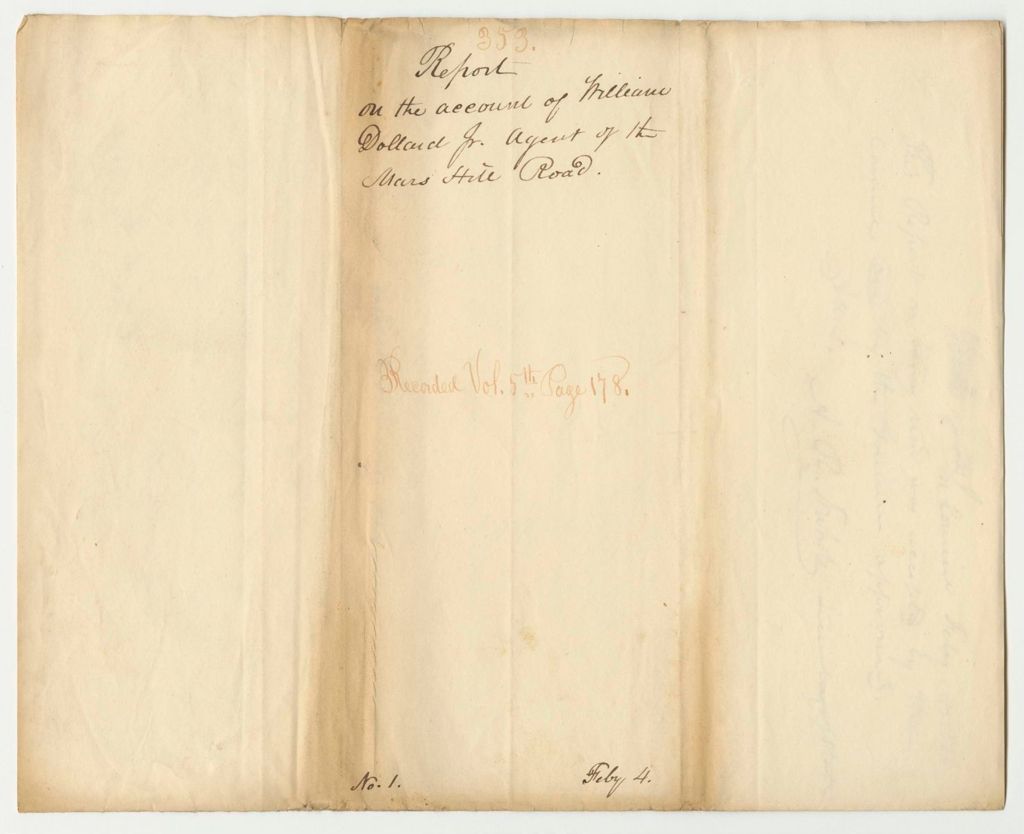 353.
Report
on the account of William
Dollard Jr. Agent of the
Mars Hill Road.
Recorded Vol. 5th Page 178.
No. 1.
Feby 4.